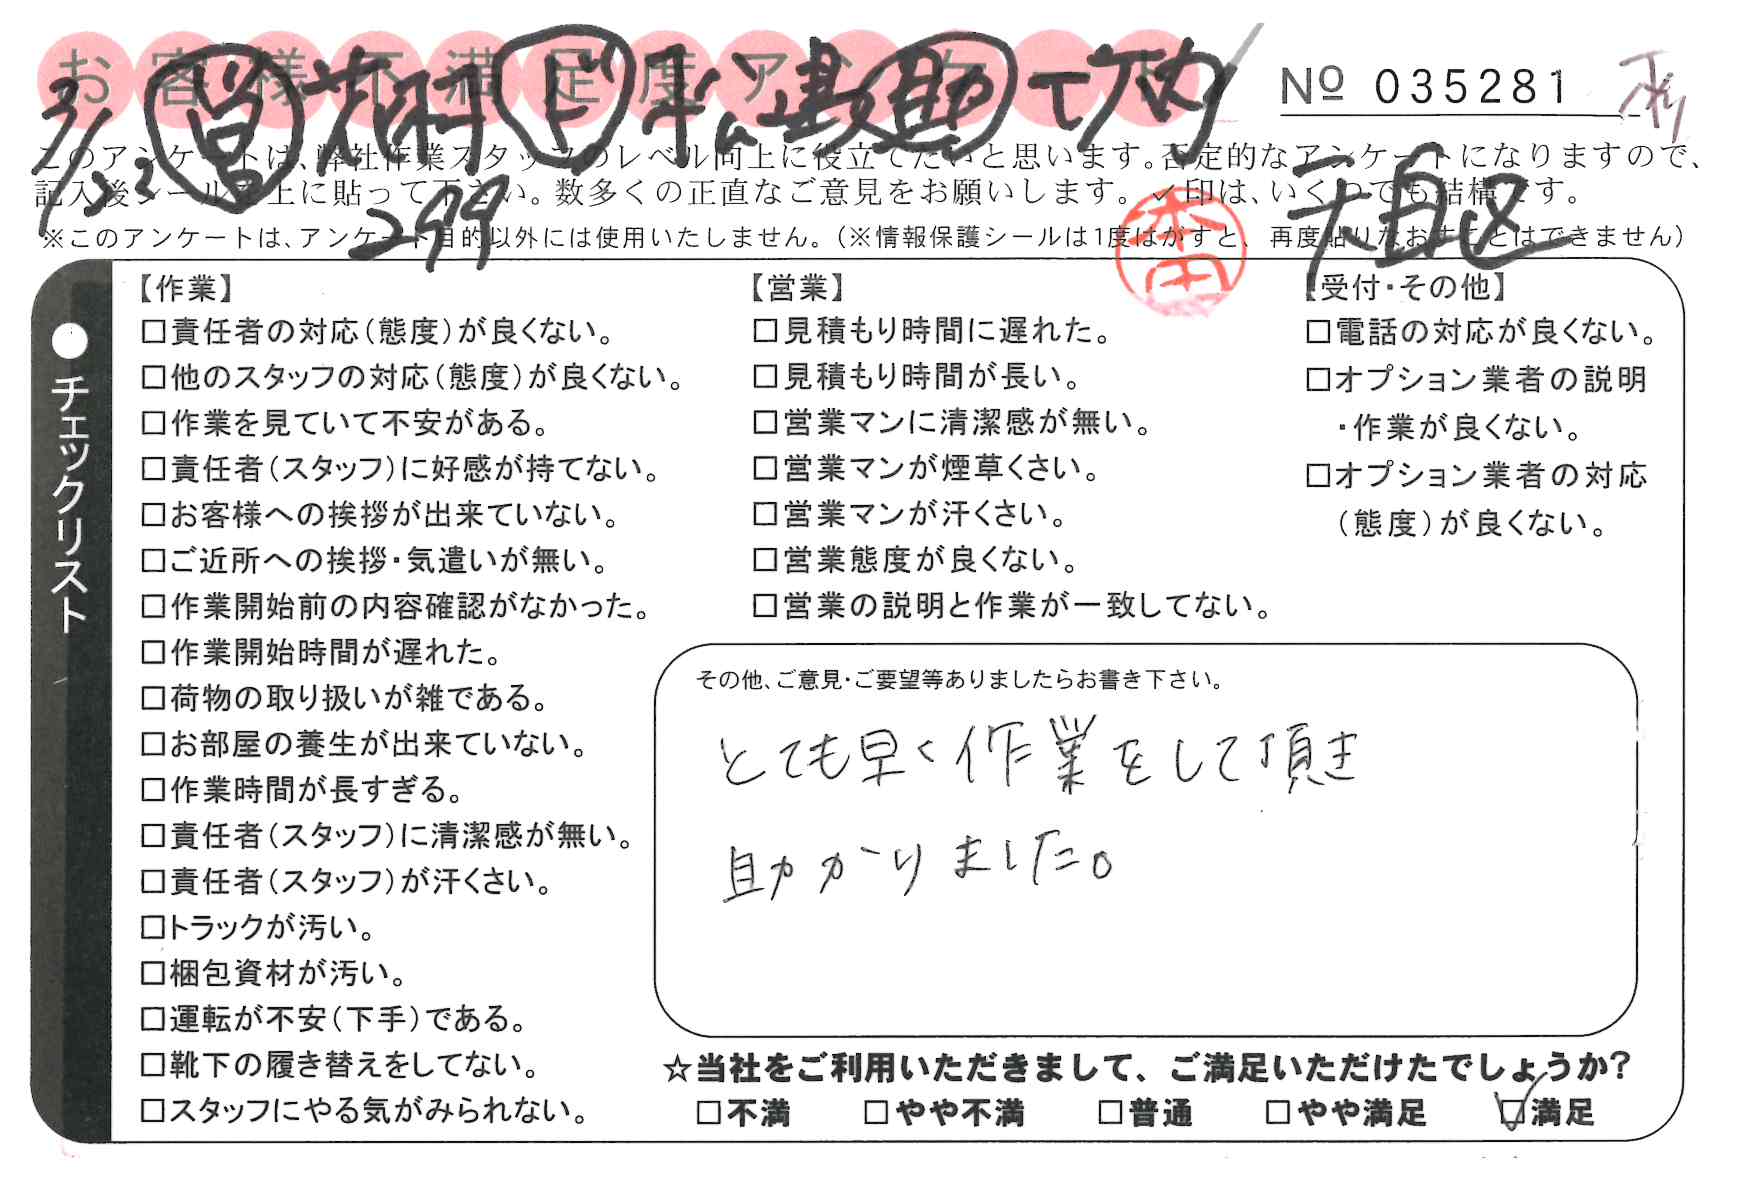 お客様不満足度アンケート
No 035281
このアンケートは、弊社作業スタッフのレベル向上に役立てたいと思います。否定的なアンケートになりますので、
記入後シールを上に貼って下さい。数多くの正直なご意見をお願いします。✓印は、いくつでも結構です。
299
天白区
※このアンケートは、アンケート目的以外には使用いたしません。(※情報保護シールは1度はがすと、再度貼りなおすことはできません)
●チェックリスト
【作業】
□責任者の対応(態度)が良くない。
□他のスタッフの対応(態度)が良くない。
□作業を見ていて不安がある。
□責任者(スタッフ)に好感が持てない。
□お客様への挨拶が出来ていない。
□ご近所への挨拶・気遣いが無い。
□作業開始前の内容確認がなかった。
□作業開始時間が遅れた。
□荷物の取り扱いが雑である。
□お部屋の養生が出来ていない。
□作業時間が長すぎる。
□責任者(スタッフ)に清潔感が無い。
□責任者(スタッフ)が汗くさい。
□トラックが汚い。
□梱包資材が汚い。
□運転が不安(下手)である。
□靴下の履き替えをしてない。
□スタッフにやる気がみられない。
【営業】
□見積もり時間に遅れた。
□見積もり時間が長い。
□営業マンに清潔感が無い。
□営業マンが煙草くさい。
□営業マンが汗くさい。
□営業態度が良くない。
□営業の説明と作業が一致してない。
【受付・その他】
□電話の対応が良くない。
□オプション業者の説明
・作業が良くない。
□オプション業者の対応
(態度)が良くない。
その他、ご意見・ご要望等ありましたらお書き下さい。
とても早く作業をして頂き
助かりました。
☆当社をご利用いただきまして、ご満足いただけたでしょうか?
□不満 □やや不満 □普通 □やや満足 ☑満足